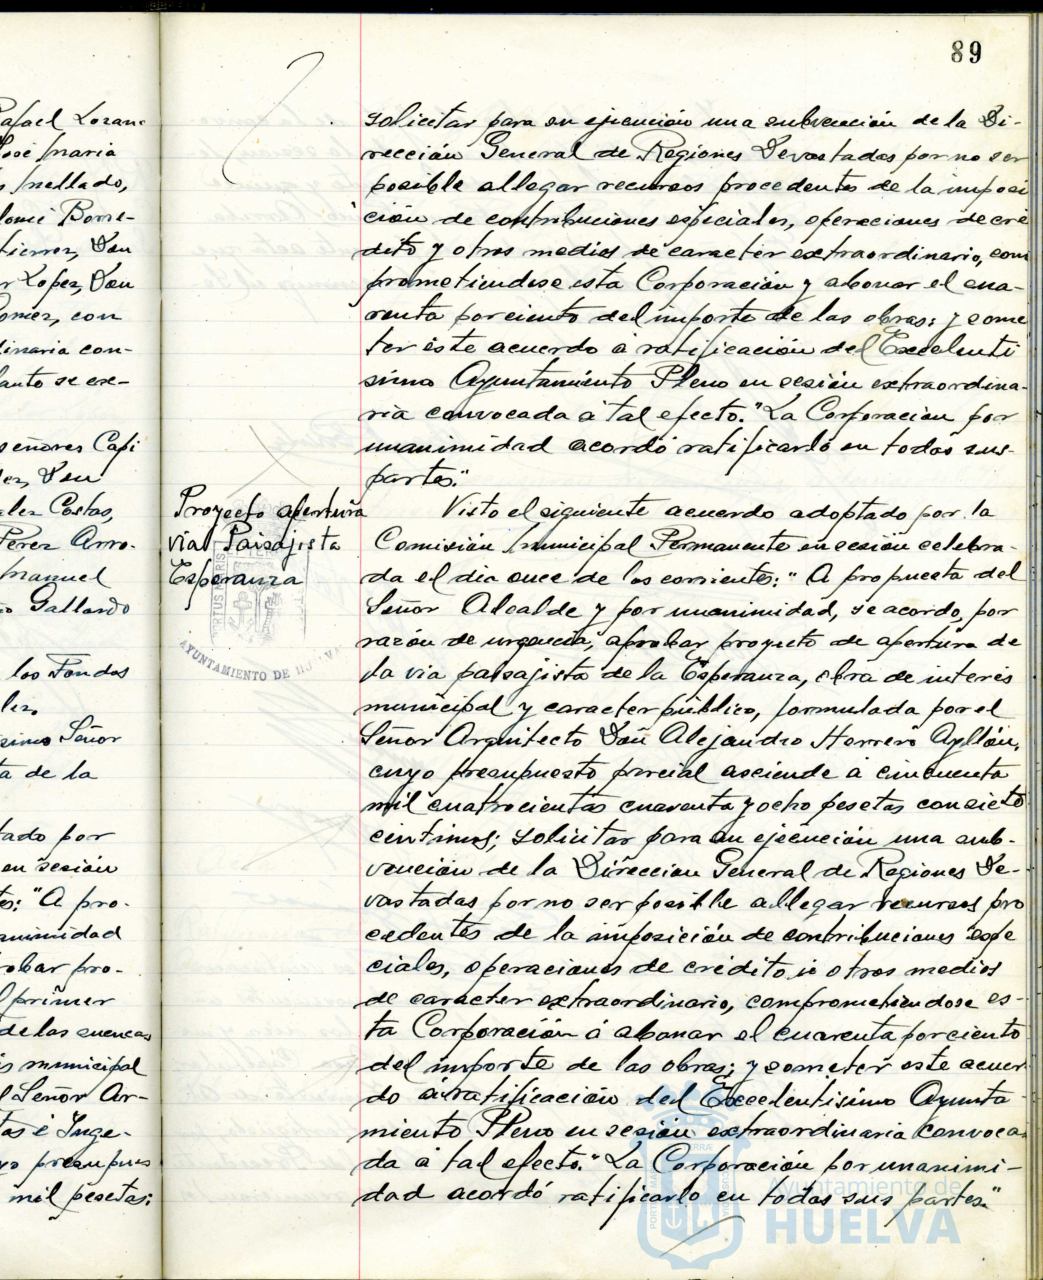 89
Rafael Lozan
José Maria
Mellado,
Borre-
tierrez, Don
Lopez, Don
Gomez, con
dinaria con-
tanto se ex-
señores Capi
Don
Costas,
Perez Arro-
Manuel
Gallardo
los Fondos
simo Señor
ta de la
tado por
en sesión
"A pro-
animidad
robar pro-
primer
de las cuencas
s municipal
l Señor Ar-
tas é Inge-
yo presupues
mil pesetas;
solicitar para su ejecución una subvención de la Di-
rección General de Regiones Devastadas por no ser
posible allegar recursos procedentes de la imposi
ción de contribuciones especiales, operaciones de cré
dito y otros medios de caracter extraordinario, com
prometiendose esta Corporación y abonar el cua-
renta por ciento del importe de las obras; y some
ter este acuerdo á ratificación del Excelenti
simo Ayuntamiento Pleno en sesión extraordina-
ria convocada á tal efecto." La Corporación por
unanimidad acordó ratificarlo en todas sus
partes."
Proyecto apertura
via Paisajista
Esperanza
AYUNTAMIENTO DE HUELVA
Visto el siguiente acuerdo adoptado por la
Comisión Municipal Permanente en sesión celebra-
da el dia once de los corrientes: "A propuesta del
Señor Alcalde y por unanimidad, se acordo, por
razón de urgencia, aprobar proyecto de apertura de
la via paisajista de la Esperanza, obra de interés
municipal y caracter público, formulada por el
Señor Arquitecto Don Alejandro Herrero Ayllón,
cuyo presupuesto parcial asciende á cincuenta
mil cuatrocientas cuarenta y ocho pesetas con siete
centimos; solicitar para su ejecución una sub-
vención de la Dirección General de Regiones De-
vastadas por no ser posible allegar recursos pro
cedentes de la imposición de contribuciones espe
ciales, operaciones de crédito ú otros medios
de caracter extraordinario, comprometiendose es-
ta Corporación á abonar el cuarenta por ciento
del importe de las obras; y someter este acuer
do á ratificación del Excelentisimo Ayunta
miento Pleno en sesión extraordinaria convoca
da á tal efecto." La Corporación por unanimi-
dad acordó ratificarlo en todas sus partes."
Ayuntamiento de
HUELVA